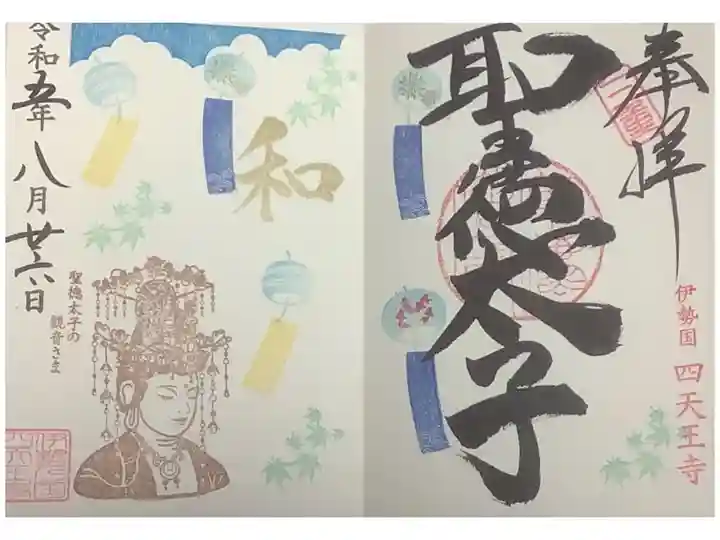 奉拝
聖徳太子
伊勢国 四天王寺
和
令和五年八月廿六日
聖徳太子の
観音さま